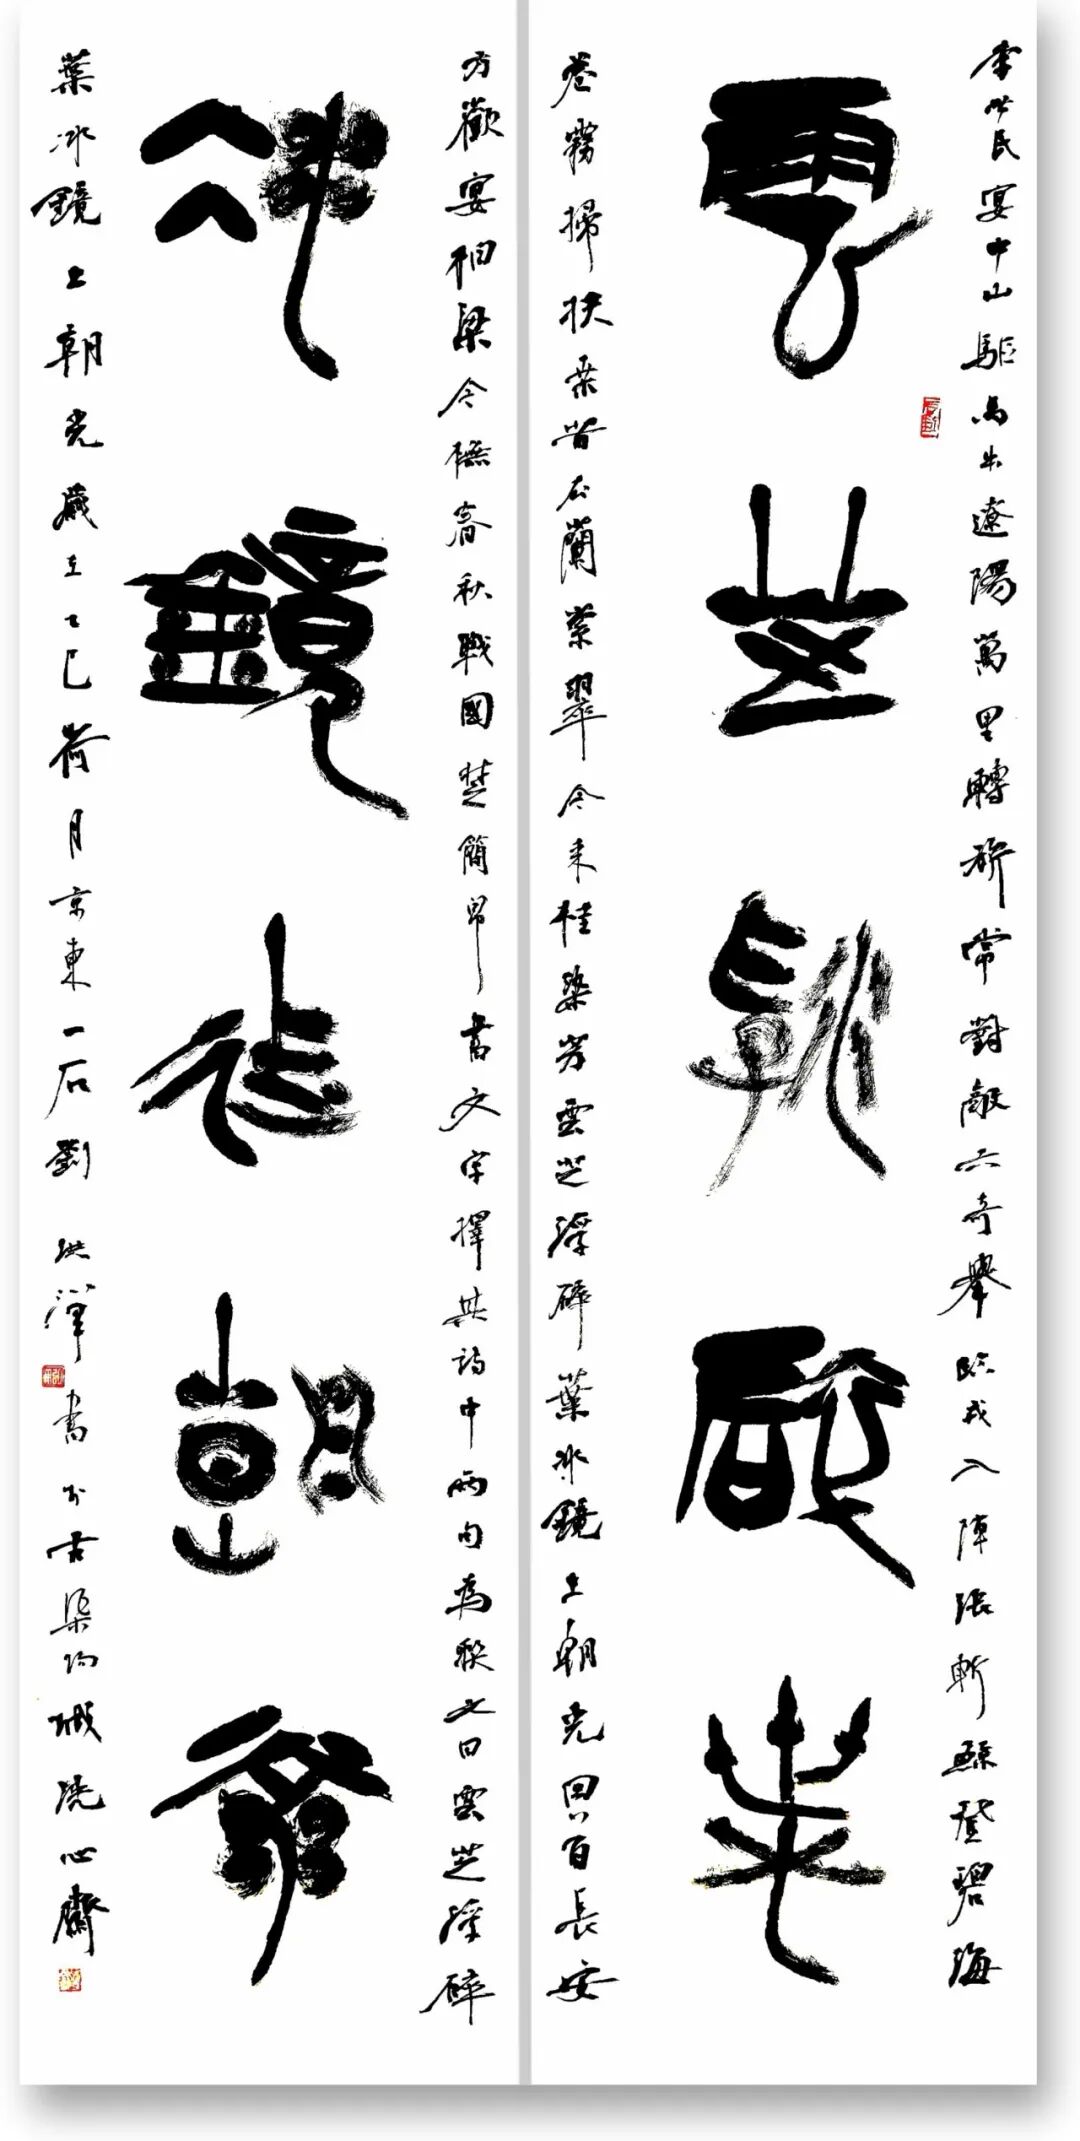 李世民宴中山驅馬出遼陽萬里轉旂常對敵六奇舉臨戎八陣張斬鯨登碧海
雲芝浮碎葉
卷霧掃扶桑昔去蘭縈翠今來桂染芳雲芝浮碎葉冰鏡上朝光回首長安
方歡宴柏梁今撫春秋戰國楚簡帛書文字擇其詩中兩句為聯文曰雲芝浮碎
冰鏡上朝光
葉冰鏡上朝光歲在乙巳荷月京東一石劉洪洋書於古渠陽城洗心齋